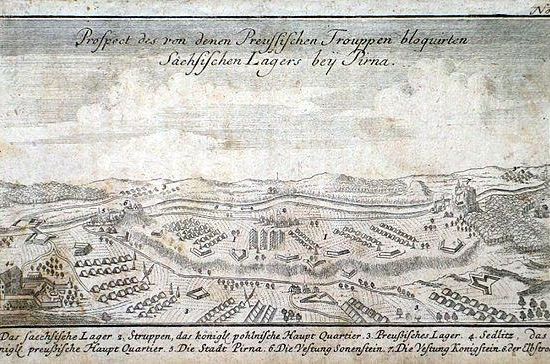 N
Prospect des von denen Preussischen Trouppen bloquirten
Sächsischen Lagers bey Pirna.
Das saechsische Lager 2. Struppen, das königl. pohlnische Haupt Quartier. 3. Preussisches Lager. 4. Sedlitz das
preussische Haupt Quartier. 5. Die Stadt Pirna. 6. Die Vestung Sonenstein. 7. Die Vestung Konigstein. 8. der